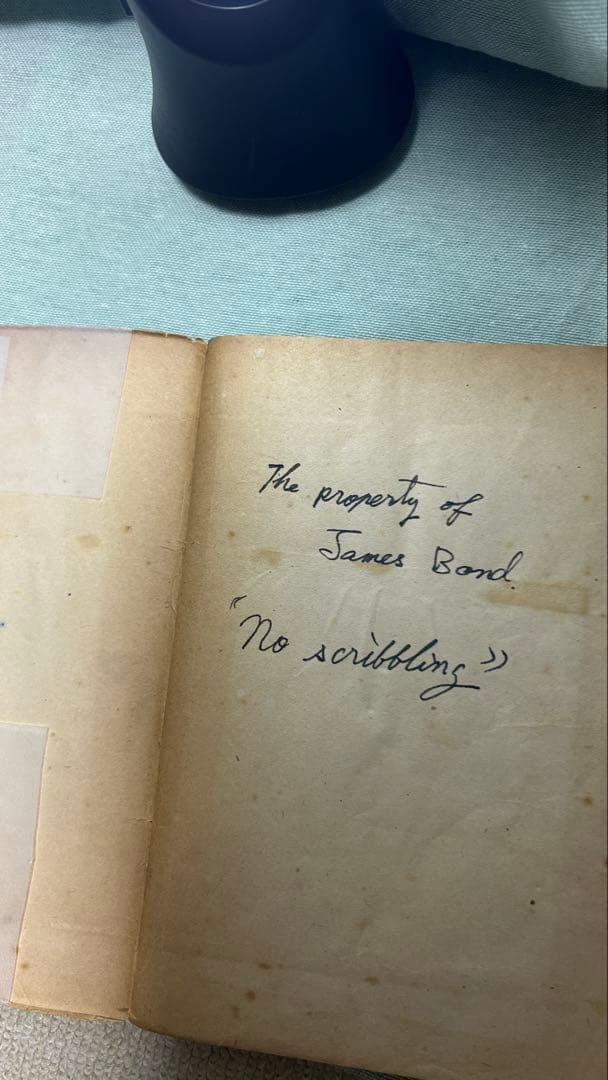 The property of
James Bond.
"No scribbling"